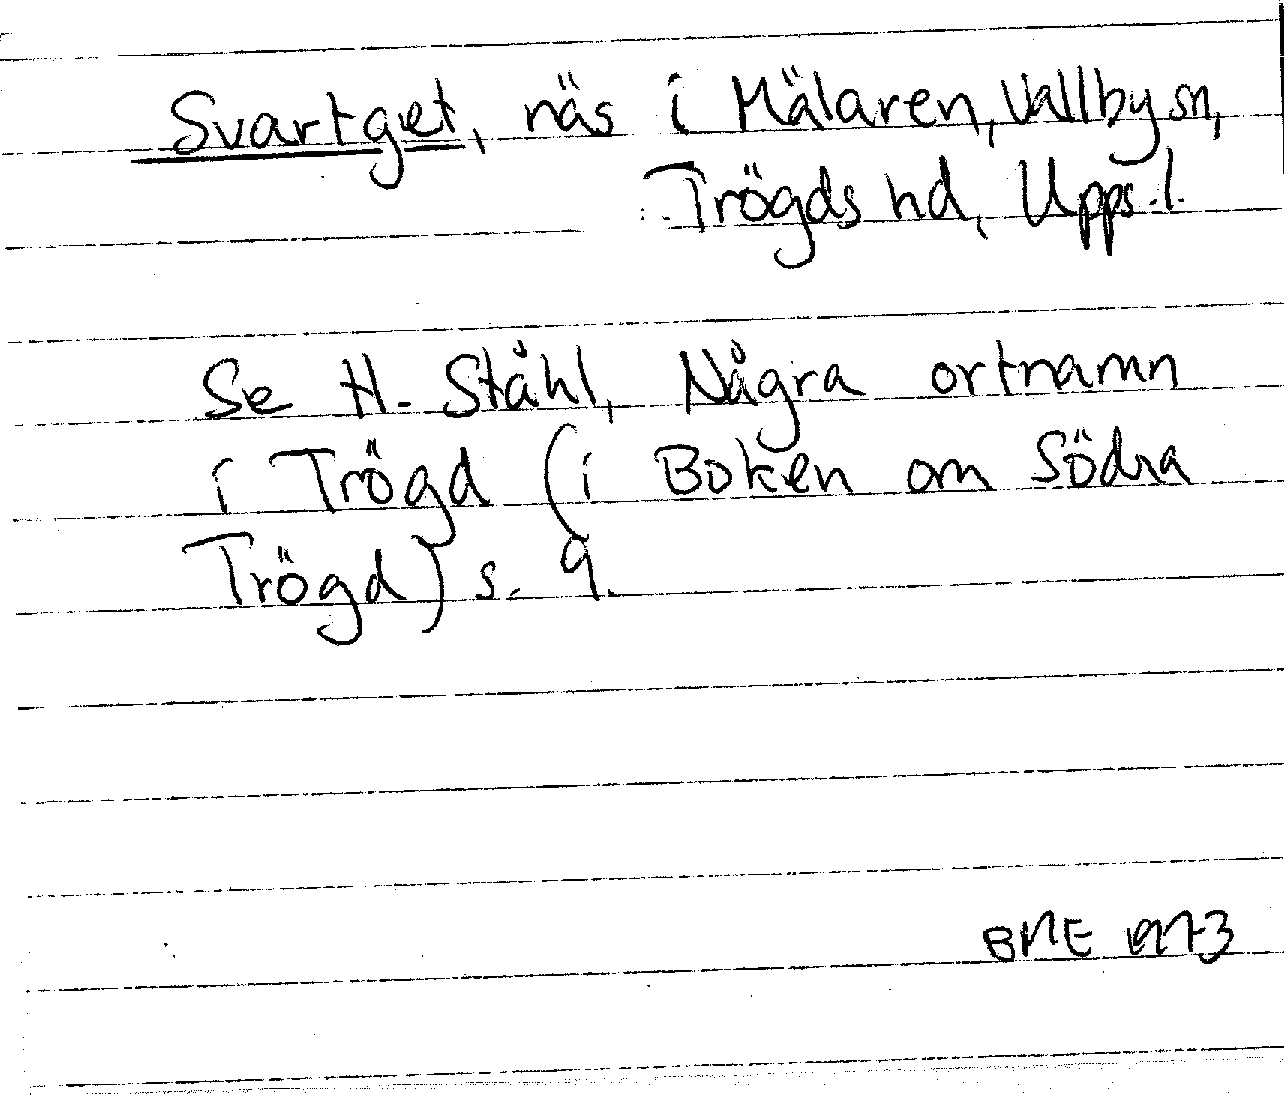 Svartget, näs i Mälaren, Vallby sn,
Trögds hd, Upps. l.
Se H. Ståhl, Några ortnamn
i Trögd (i Boken om Södra
Trögd) s. 9.
BME 1973